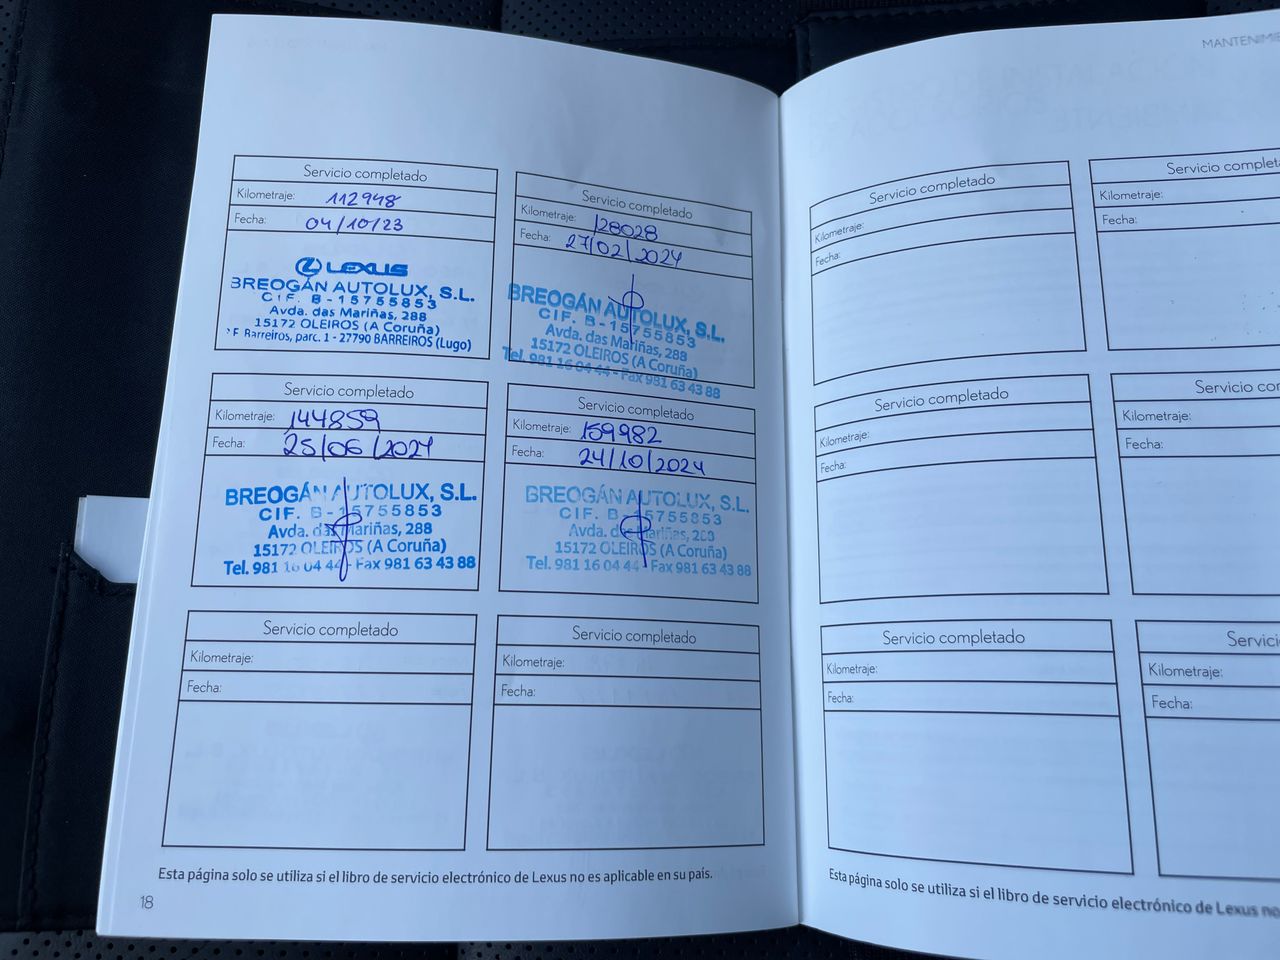 Servicio completado
Kilometraje: 112948
Fecha: 04/10/23
LEXUS
BREOGÁN AUTOLUX, S.L.
C.I.F. B-15755853
Avda. das Mariñas, 288
15172 OLEIROS (A Coruña)
Barreiros, parc. 1 - 27790 BARREIROS (Lugo)
Servicio completado
Kilometraje: 128028
Fecha: 27/02/2024
BREOGÁN AUTOLUX, S.L.
CIF. B-15755853
Avda. das Mariñas, 288
15172 OLEIROS (A Coruña)
Tel. 981 16 04 44 - Fax 981 63 43 88
Servicio completado
Kilometraje: 144859
Fecha: 25/06/2024
BREOGÁN AUTOLUX, S.L.
CIF. B-15755853
Avda. das Mariñas, 288
15172 OLEIROS (A Coruña)
Tel. 981 16 04 44 - Fax 981 63 43 88
Servicio completado
Kilometraje: 159982
Fecha: 24/10/2024
BREOGÁN AUTOLUX, S.L.
CIF. B-15755853
Avda. das Mariñas, 288
15172 OLEIROS (A Coruña)
Tel. 981 16 04 44 - Fax 981 63 43 88
Servicio completado
Kilometraje:
Fecha:
Servicio completado
Kilometraje:
Fecha:
Esta página solo se utiliza si el libro de servicio electrónico de Lexus no es aplicable en su país.
18
MANTENIMIE
Servicio completado
Kilometraje:
Fecha:
Servicio completa
Kilometraje:
Fecha:
Servicio completado
Kilometraje:
Fecha:
Servicio co
Kilometraje:
Fecha:
Servicio completado
Kilometraje:
Fecha:
Servici
Kilometraje:
Fecha:
Esta página solo se utiliza si el libro de servicio electrónico de Lexus no